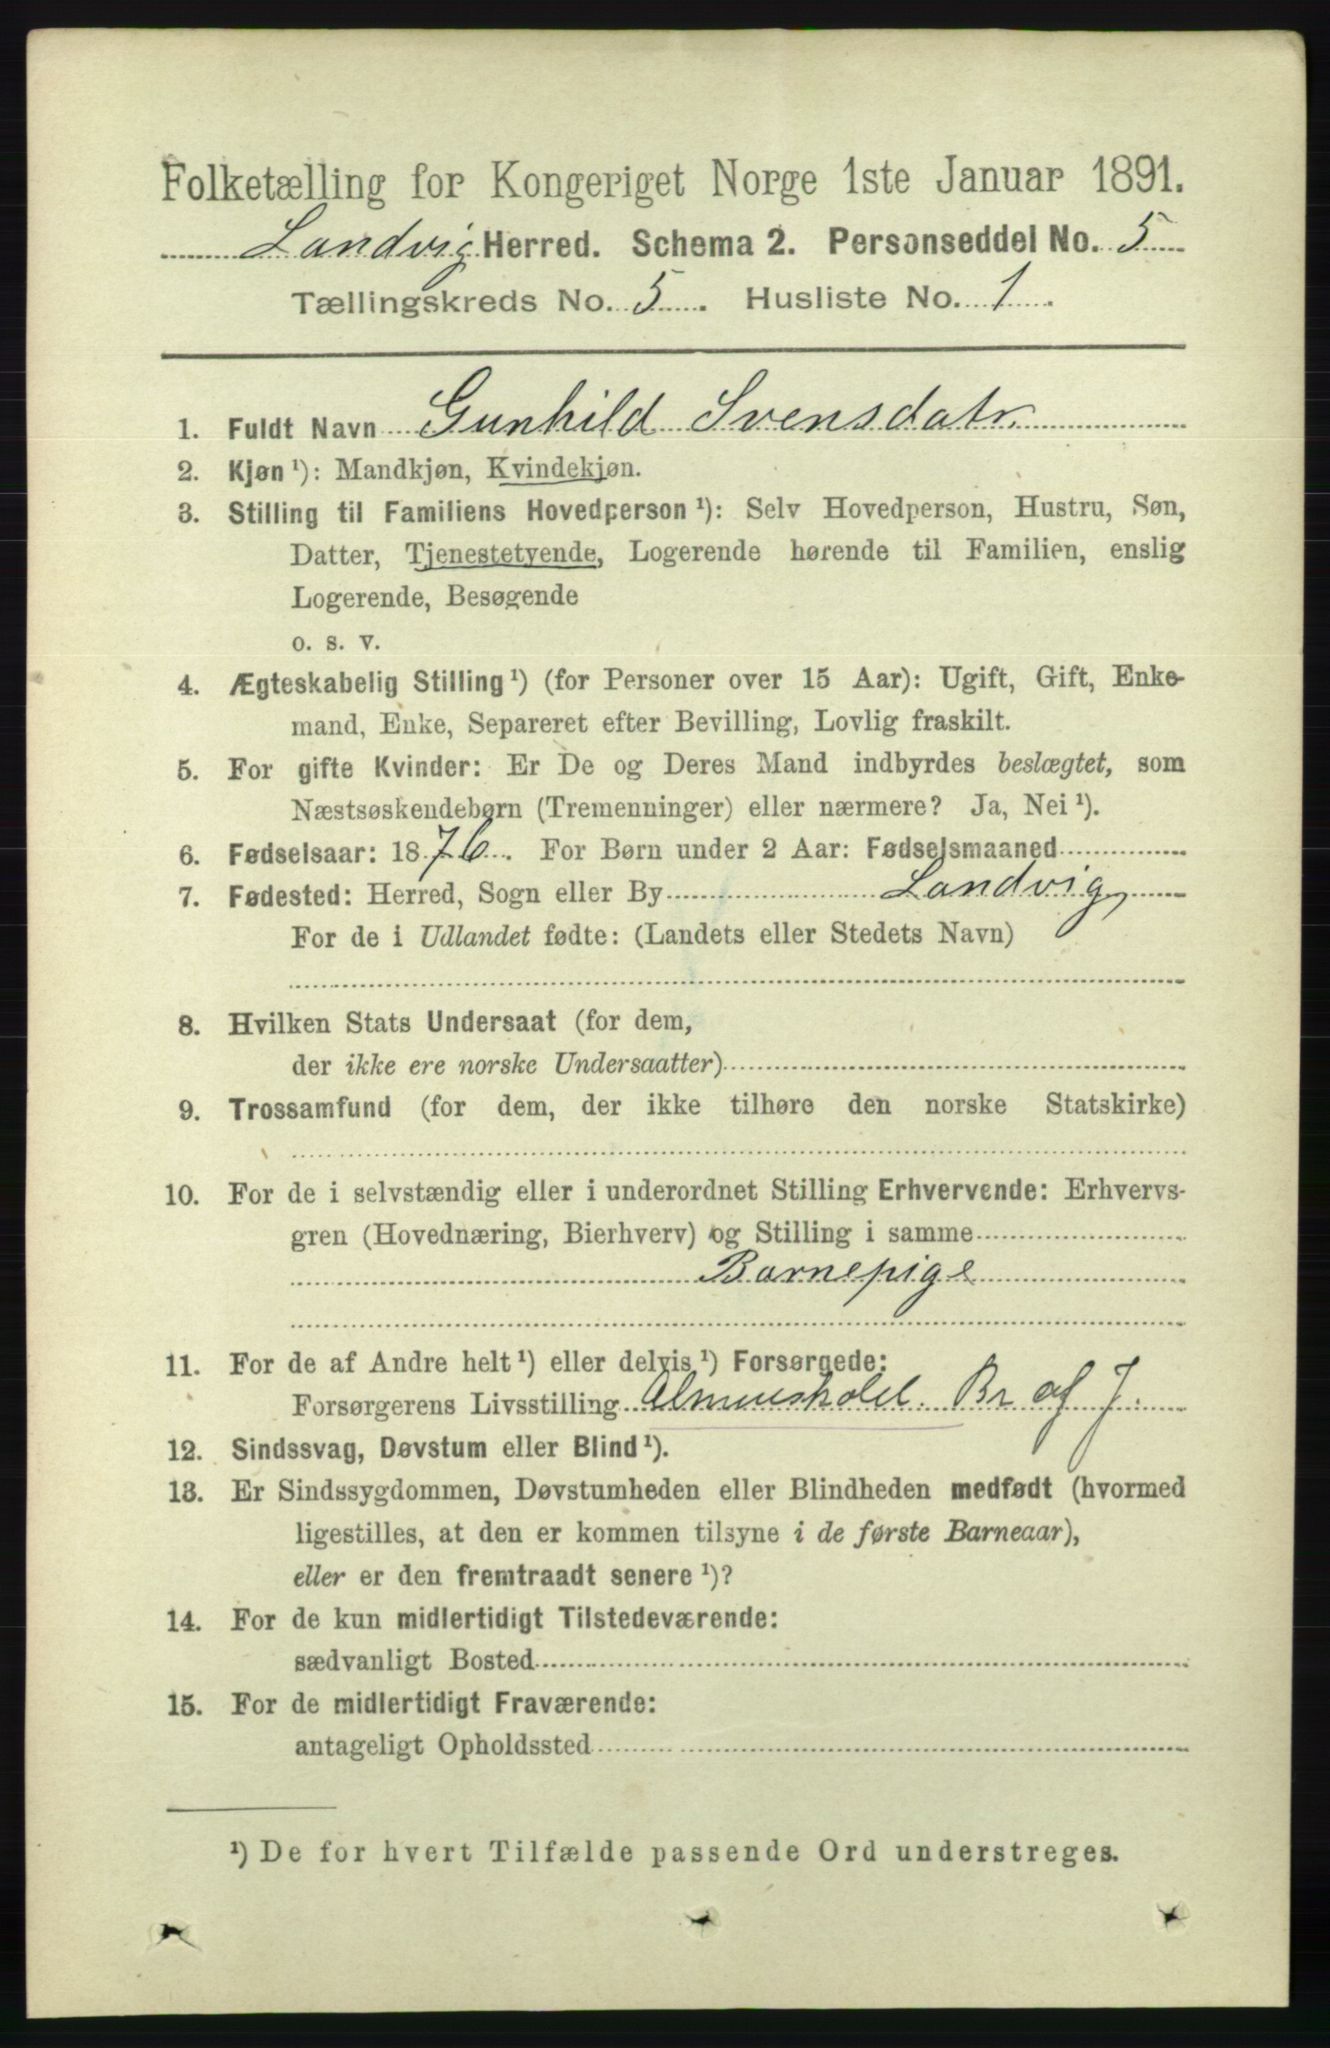 Folketælling for Kongeriget Norge 1ste Januar 1891.
Landvig Herred. Schema 2. Personseddel No. 5
Tællingskreds No. 5. Husliste No. 1.
1. Fuldt Navn Gunhild Svensdatr.
2. Kjøn ¹): Mandkjøn, Kvindekjøn.
3. Stilling til Familiens Hovedperson ¹): Selv Hovedperson, Hustru, Søn,
Datter, Tjenestetyende, Logerende hørende til Familien, enslig
Logerende, Besøgende
o. s. v.
4. Ægteskabelig Stilling ¹) (for Personer over 15 Aar): Ugift, Gift, Enke-
mand, Enke, Separeret efter Bevilling, Lovlig fraskilt.
5. For gifte Kvinder: Er De og Deres Mand indbyrdes beslægtet, som
Næstsøskendebørn (Tremenninger) eller nærmere? Ja, Nei ¹).
6. Fødselsaar: 1876. For Børn under 2 Aar: Fødselsmaaned
7. Fødested: Herred, Sogn eller By Landvig
For de i Udlandet fødte: (Landets eller Stedets Navn)
8. Hvilken Stats Undersaat (for dem,
der ikke ere norske Undersaatter)
9. Trossamfund (for dem, der ikke tilhøre den norske Statskirke)
10. For de i selvstændig eller i underordnet Stilling Erhvervende: Erhvervs-
gren (Hovednæring, Bierhverv) og Stilling i samme
Barnepige
11. For de af Andre helt ¹) eller delvis ¹) Forsørgede:
Forsørgerens Livsstilling Br af J.
12. Sindssvag, Døvstum eller Blind ¹).
13. Er Sindssygdommen, Døvstumheden eller Blindheden medfødt (hvormed
ligestilles, at den er kommen tilsyne i de første Barneaar),
eller er den fremtraadt senere ¹)?
14. For de kun midlertidigt Tilstedeværende:
sædvanligt Bosted
15. For de midlertidigt Fraværende:
antageligt Opholdssted
¹) De for hvert Tilfælde passende Ord understreges.